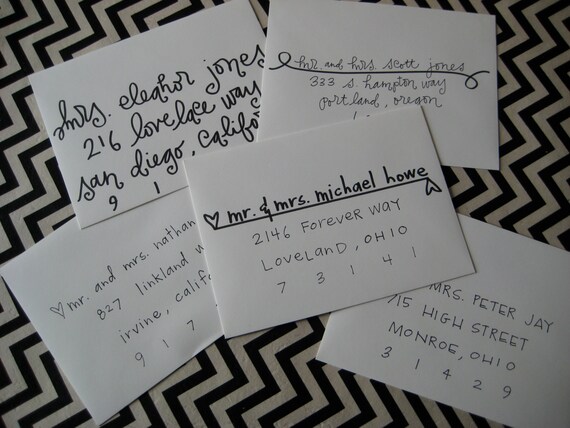 mrs. eleanor jones
216 lovelace way
san diego, califor
9 1
mr. and mrs. scott jones
333 s. hampton way
portland, oregon
♡ mr. & mrs. michael howe
2146 Forever Way
Loveland, Ohio
7 3 1 4 1
♡ mr. and mrs. nathan
827 linkland w
irvine, calif
9 1 7
MRS. PETER JAY
715 HIGH STREET
MONROE, OHIO
3 1 4 2 9